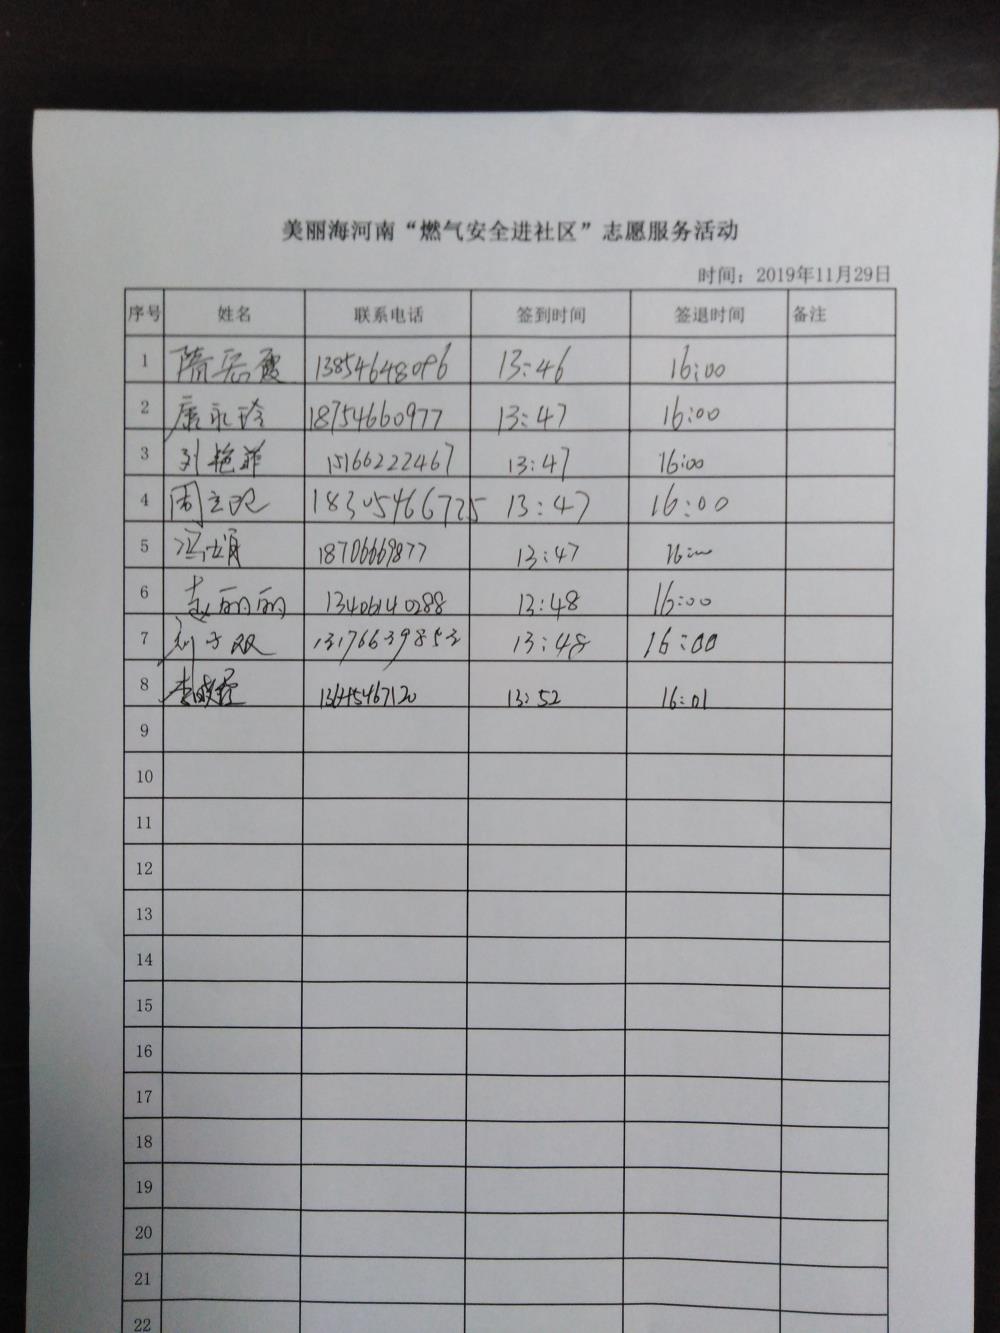 美丽海河南“燃气安全进社区”志愿服务活动
时间：2019年11月29日
序号 姓名 联系电话 签到时间 签退时间 备注
1 隋岳霞 13854648096 13:46 16:00
2 康永玲 18754660977 13:47 16:00
3 刘艳菲 15166222467 13:47 16:00
4 周立 18305466725 13:47 16:00
5 冯娟 18706669877 13:47 16:00
6 赵丽丽 13406140288 13:48 16:00
7 刘子双 13176639853 13:48 16:00
8 李 13645467120 13:52 16:01
9
10
11
12
13
14
15
16
17
18
19
20
21
22